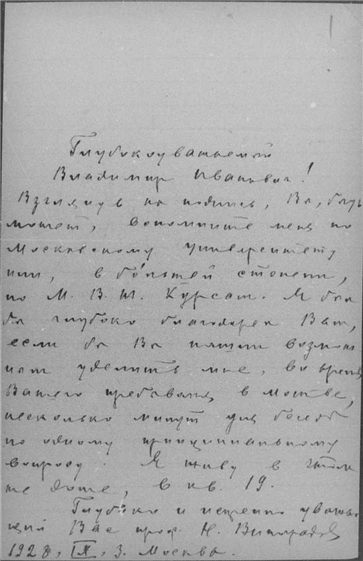 Глубокоуважаемый
Владимир Иванович!
Взглянув на подпись, Вы, быть
может, вспомните меня по
Московскому университету
или, в большей степени,
по М. В. Ж. Курсам. Я был
бы глубоко благодарен Вам,
если бы Вы нашли возмож
ным уделить мне, во время
Вашего пребывания в Москве,
несколько минут для беседы
по одному принципиальному
вопросу. Я живу в этом
же доме, в кв. 19.
Глубоко и искренно уважаю
щий Вас проф. Н. Виноградов
1928, IX, 3. Москва.